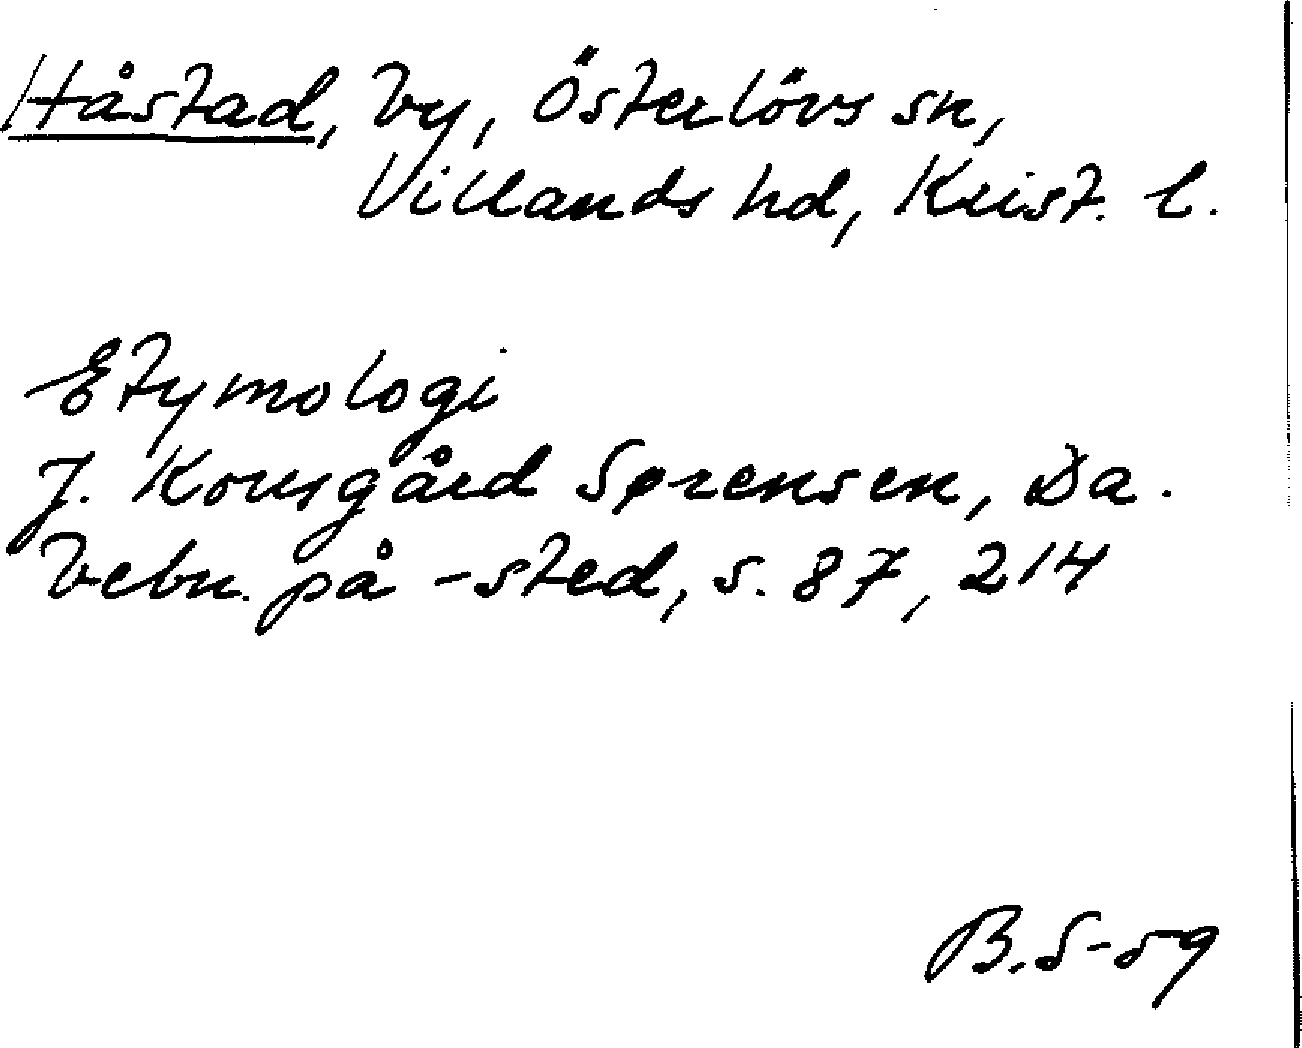 Håstad, by, Österlövs sn,
Villands hd, Krist. l.
Etymologi
J. Kousgård Sørensen, Da.
bebn. på -sted, s. 87, 214
B. S-59